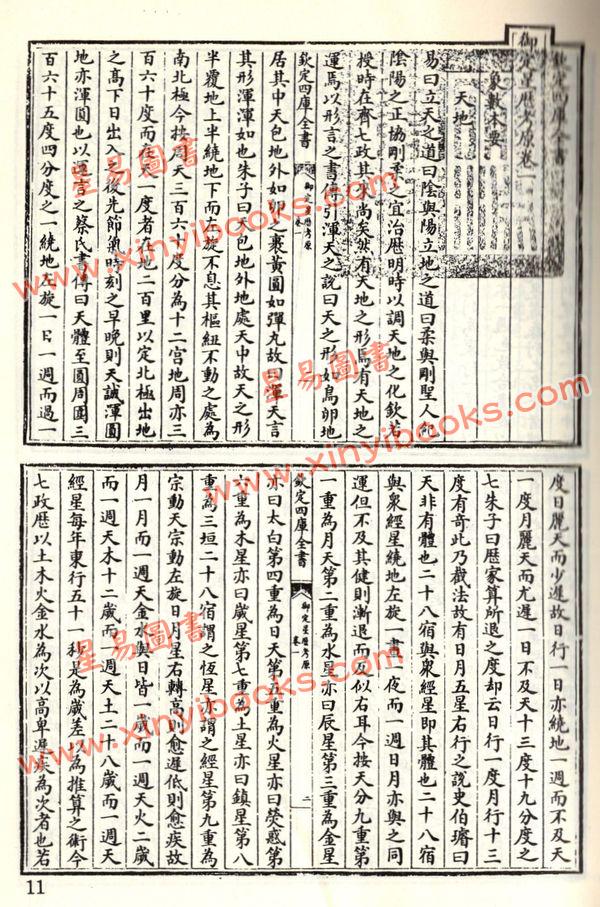 欽定四庫全書
御定星歷考原卷一
象數本要
天地
易曰立天之道曰陰與陽立地之道曰柔與剛聖人劑
陰陽之正協剛柔之宜治歷明時以調天地之化欽若
授時在齊七政其來尚矣然有天地之形焉有天地之
運焉以形言之書傳引渾天之說曰天之形如鳥卵地
欽定四庫全書
御定星歷考原
卷一
居其中天包地外如卵之裹黃圓如彈丸故曰渾天言
其形渾渾如也朱子曰天包地外地處天中故天之形
半覆地上半繞地下而左旋不息其樞紐不動之處為
南北極今按周天三百六十度分為十二宮地周亦三
百六十度而在天一度者在地二百里以定北極出地
之高下日出入之後先節氣時刻之早晚則天誠渾圓
地亦渾圓也以運言之蔡氏書傳曰天體至圓周圍三
百六十五度四分度之一繞地左旋一日一週而過一
度日麗天而少遲故日行一日亦繞地一週而不及天
一度月麗天而尤遲一日不及天十三度十九分度之
七朱子曰歷家算所退之度却云日行一度月行十三
度有奇此乃截法故有日月五星右行之說史伯璿曰
天非有體也二十八宿與衆經星即其體也二十八宿
與衆經星繞地左旋一晝一夜而一週日月亦與之同
運但不及其健則漸退而反似右耳今按天分九重第
一重為月天第二重為水星亦曰辰星第三重為金星
欽定四庫全書
御定星歷考原
卷一
二
亦曰太白第四重為日天第五重為火星亦曰熒惑第
六重為木星亦曰歲星第七重為土星亦曰鎮星第八
重為三垣二十八宿謂之恆星亦謂之經星第九重為
宗動天宗動左旋日月星右轉高則愈遲低則愈疾故
月一月而一週天金水與日皆一歲而一週天火二歲
而一週天木十二歲而一週天土二十八歲而一週天
經星每年東行五十一秒是為歲差以為推算之術今
七政歷以土木火金水為次以高卑遲疾為次者也若
11
星易圖書
www.xinyibooks.com
星易圖書
www.xinyibooks.com
星易圖書
www.xinyibooks.com
星易圖書
www.xinyibooks.com